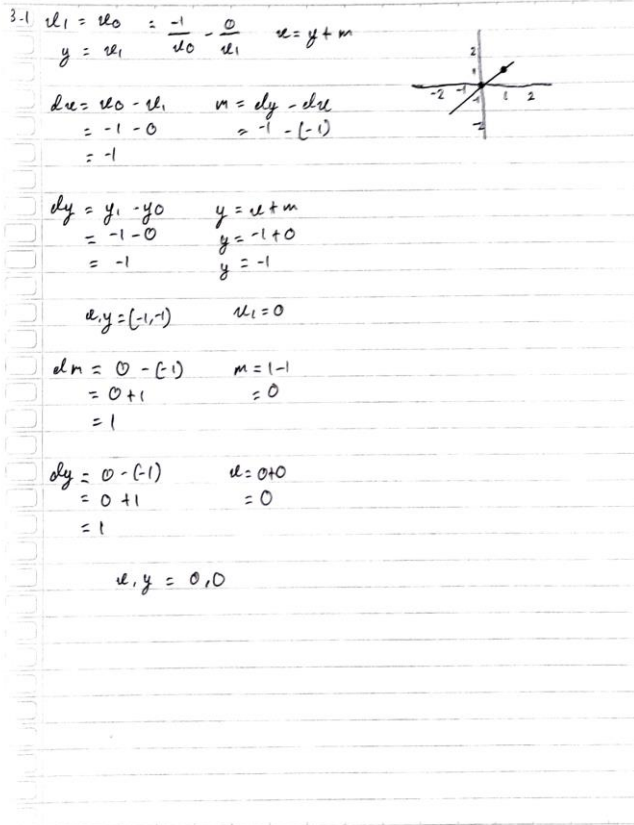 3-1 x1 = x0 = -1/x0 - 0/x1 x = y + m
y = x1
dx = x0 - x1 m = dy - dx
= -1 - 0 = -1 - (-1)
= -1
dy = y1 - y0 y = x + m
= -1 - 0 y = -1 + 0
= -1 y = -1
x,y = (-1,-1) x1 = 0
dn = 0 - (-1) m = 1 - 1
= 0 + 1 = 0
= 1
dy = 0 - (-1) x = 0+0
= 0 + 1 = 0
= 1
x, y = 0,0
2
1
-2 -1 1 2
-1
-2